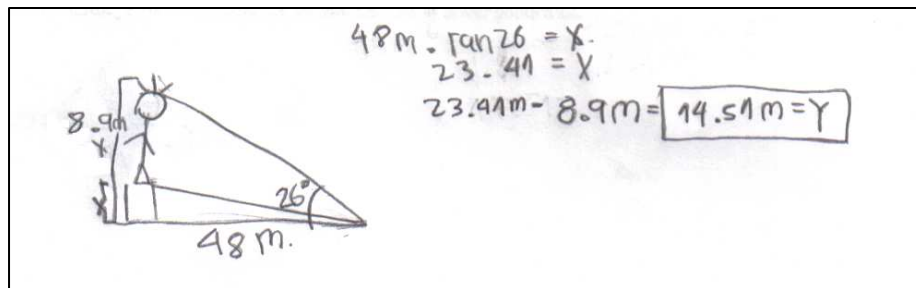 48m. tan26 = X.
23.41 = X
23.41m - 8.9m = 14.51m = Y
8.9m
X
Y
26°
48 m.